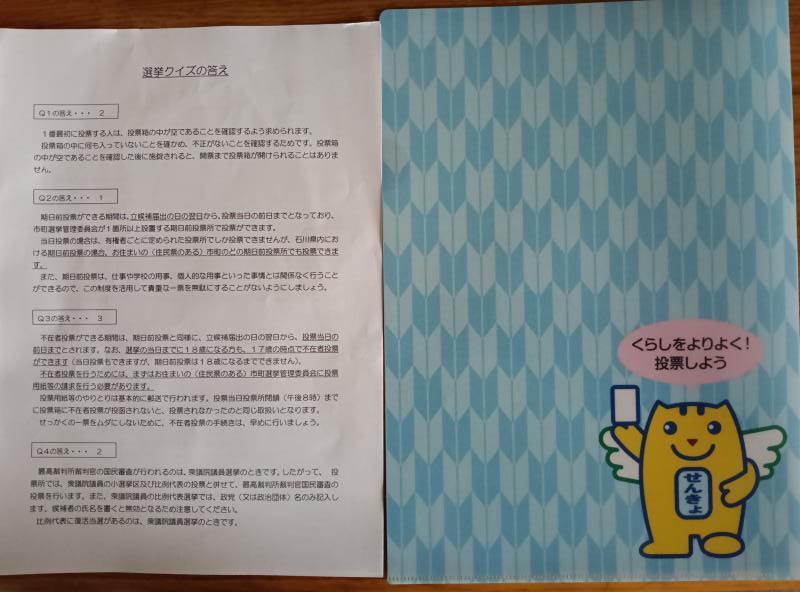 選挙クイズの答え
Q1の答え・・・ 2
1番最初に投票する人は、投票箱の中が空であることを確認するよう求められます。
投票箱の中に何も入っていないことを確かめ、不正がないことを確認するためです。投票箱
の中が空であることを確認した後に施錠されると、開票まで投票箱が開けられることはありま
せん。
Q2の答え・・・ 1
期日前投票ができる期間は、立候補届出の日の翌日から、投票当日の前日までとなっており、
市町選挙管理委員会が1箇所以上設置する期日前投票所で投票ができます。
当日投票の場合は、有権者ごとに定められた投票所でしか投票できませんが、石川県内にお
ける期日前投票の場合、お住まいの（住民票のある）市町のどの期日前投票所でも投票できま
す。
また、期日前投票は、仕事や学校の用事、個人的な用事といった事情とは関係なく行うこと
ができるので、この制度を活用して貴重な一票を無駄にすることがないようにしましょう。
Q3の答え・・・ 3
不在者投票ができる期間は、期日前投票と同様に、立候補届出の日の翌日から、投票当日の
前日までとされます。なお、選挙の当日までに18歳になる方も、17歳の時点で不在者投票
ができます（当日投票もできますが、期日前投票は18歳になるまでできません）。
不在者投票を行うためには、まずはお住まいの（住民票のある）市町選挙管理委員会に投票
用紙等の請求を行う必要があります。
投票用紙等のやりとりは基本的に郵送で行われます。投票当日投票所閉鎖（午後8時）まで
に投票箱に不在者投票が投函されないと、投票されなかったのと同じ取扱いとなります。
せっかくの一票をムダにしないために、不在者投票の手続きは、早めに行いましょう。
Q4の答え・・・ 2
最高裁判所裁判官の国民審査が行われるのは、衆議院議員選挙のときです。したがって、 投
票所では、衆議院議員の小選挙区及び比例代表の投票と併せて、最高裁判所裁判官国民審査の
投票を行います。また、衆議院議員の比例代表選挙では、政党（又は政治団体）名のみ記入し
ます。候補者の氏名を書くと無効となるため注意してください。
比例代表に復活当選があるのは、衆議院議員選挙のときです。
くらしをよりよく!
投票しよう
せんきょ